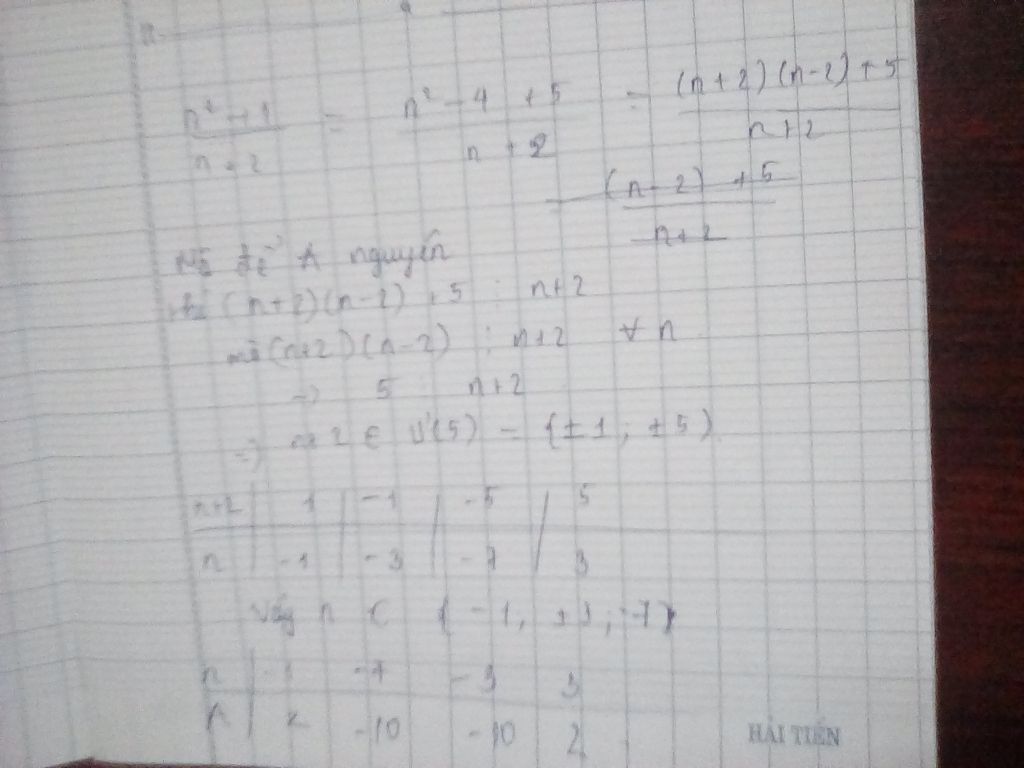 n² + 1 / n + 2 = n² - 4 + 5 / n + 2 = (n+2)(n-2)+5 / n+2
(n-2) + 5 / n+2
để A nguyên
(n+2)(n-2) + 5 ⋮ n+2
mà (n+2)(n-2) ⋮ n+2 ∀ n
=> 5 ⋮ n+2
=> n+2 ∈ Ư(5) = {±1; ±5}
n+2 | 1 | -1 | -5 | 5
n | -1 | -3 | -7 | 3
Vậy n ∈ {-1; ±3; -7}
n | -1 -7 -3 3
A | 2 -10 -10 2
HẢI TIẾN